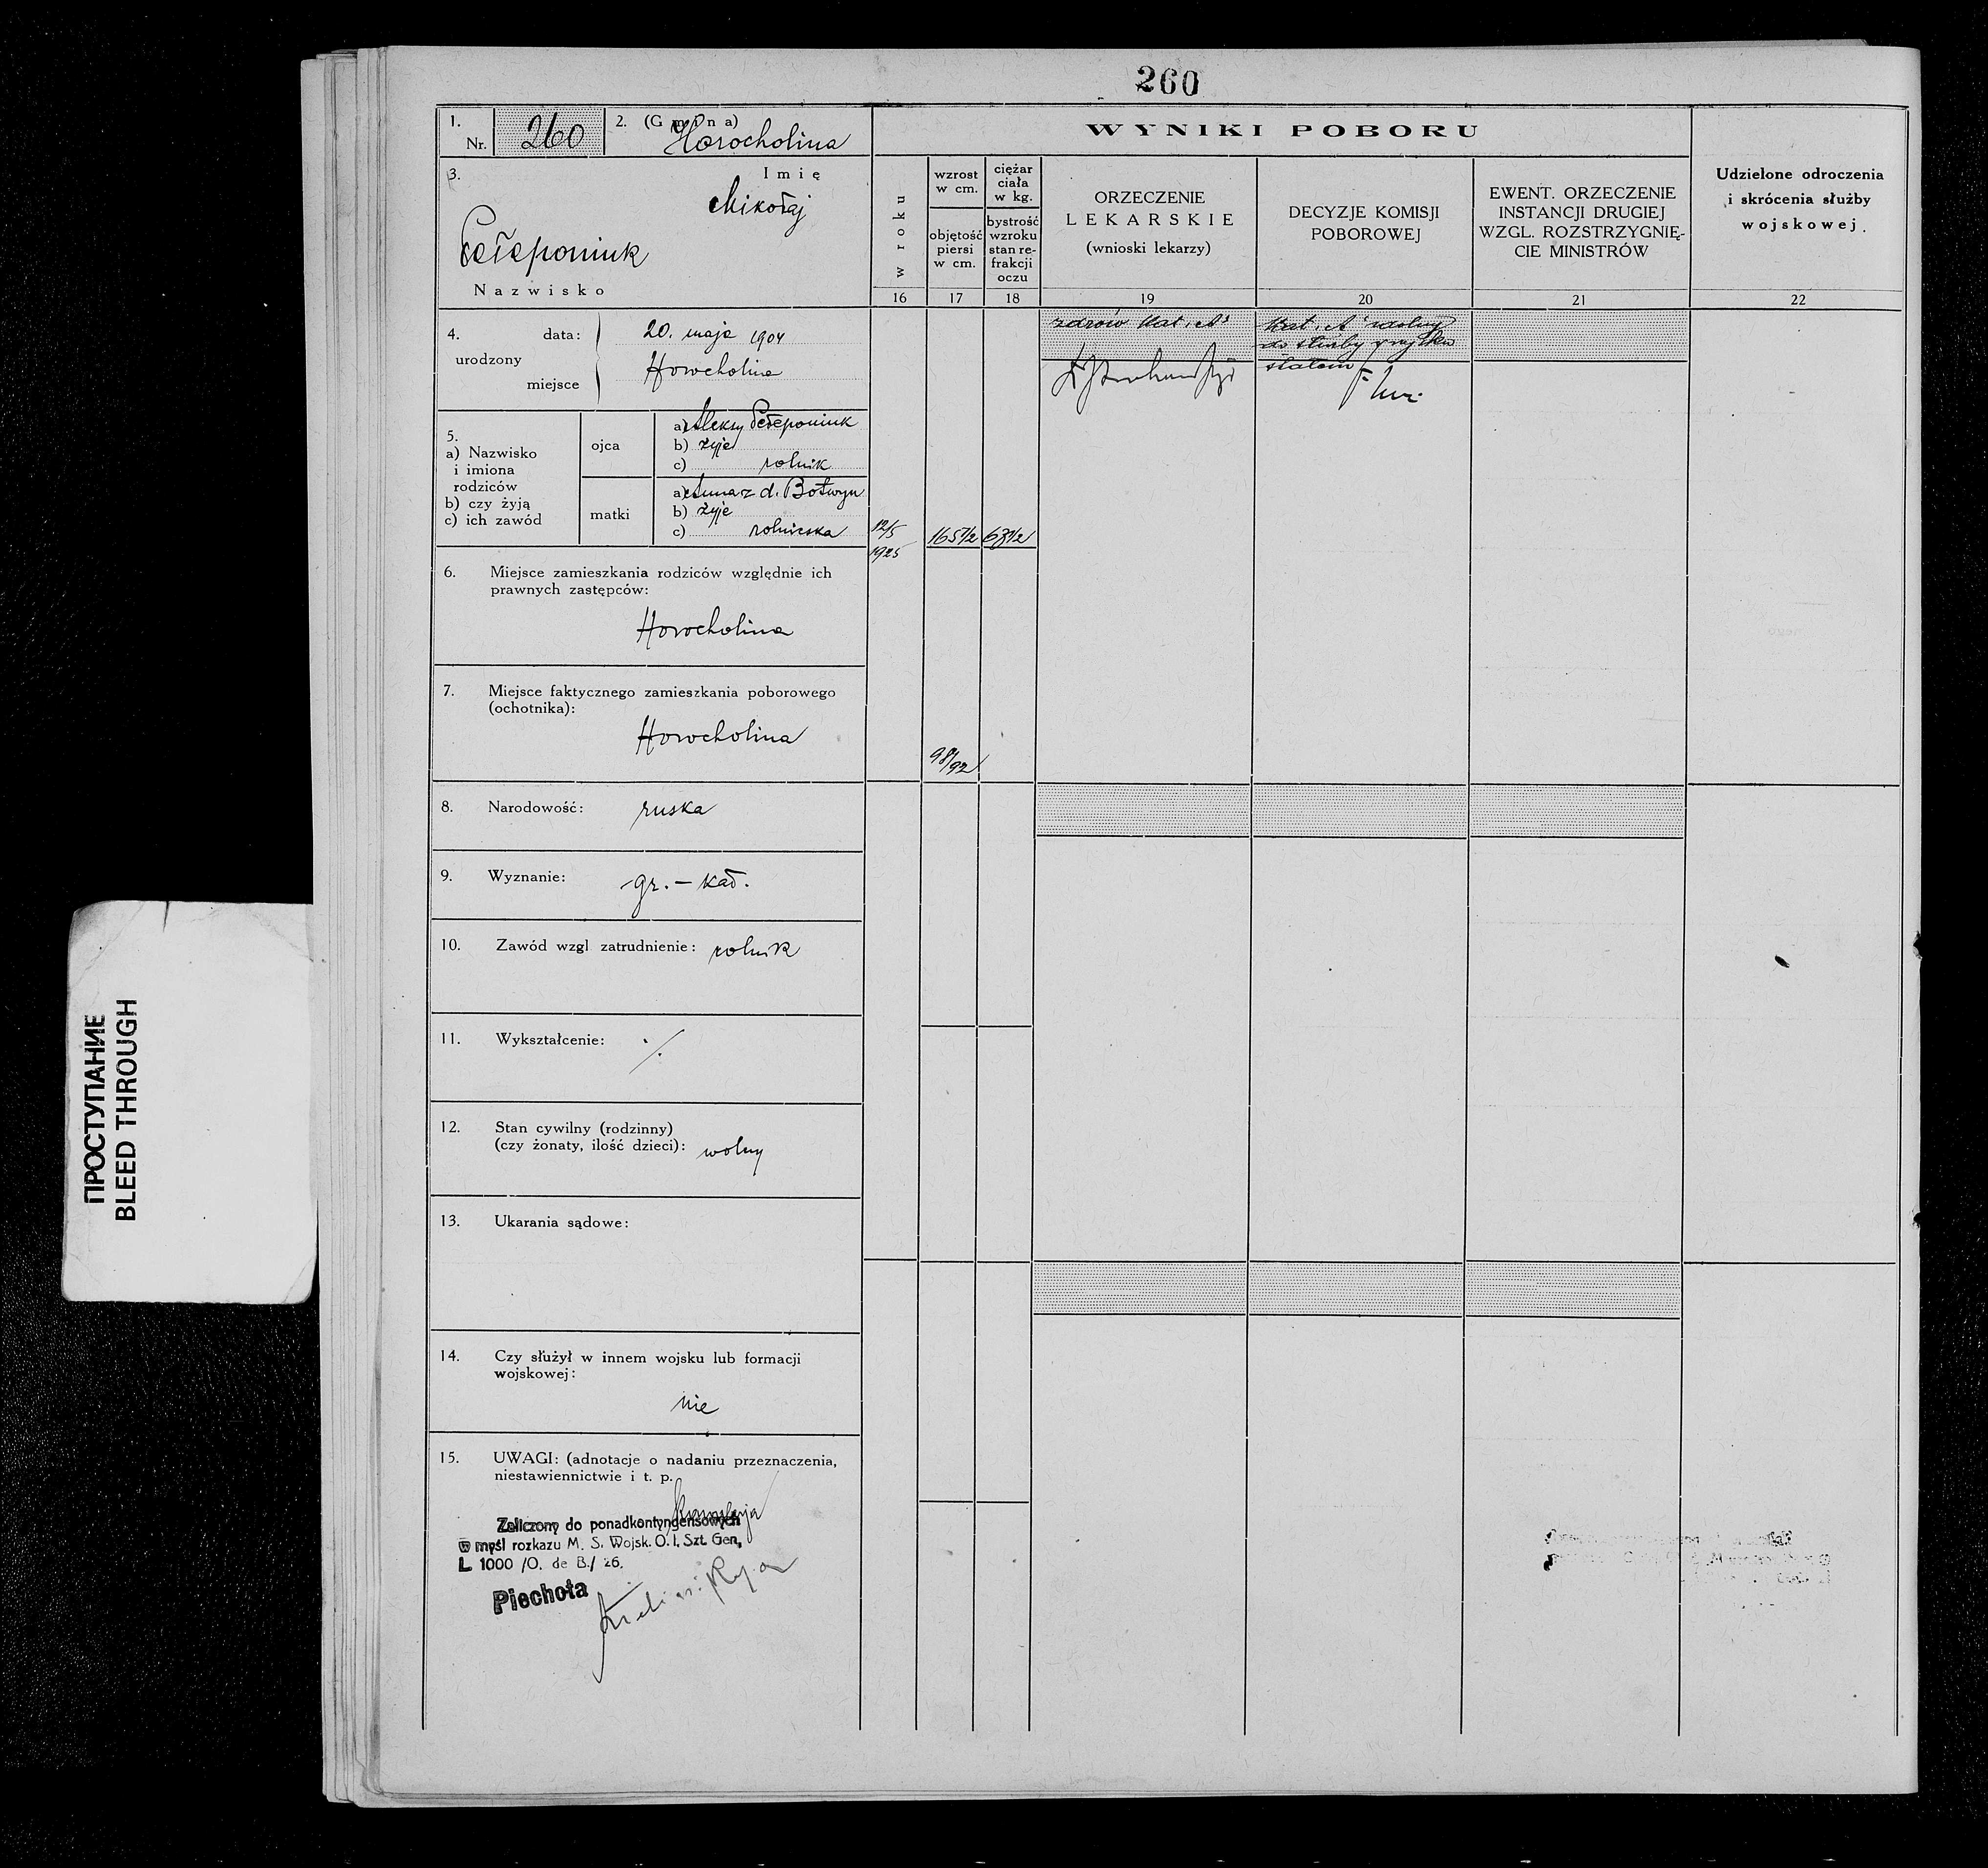 260
1.
Nr. 260
2. (Gmina)
Horocholina
3.
Imię
Mikołaj
Pełeponiuk
Nazwisko
4.
urodzony
data: 20. maja 1904
miejsce Horocholina
5.
a) Nazwisko
i imiona
rodziców
b) czy żyją
c) ich zawód
ojca
a) Aleksy Pełeponiuk
b) żyje
c) rolnik
matki
a) Anna z d. Botwyn
b) żyje
c) rolniczka
6. Miejsce zamieszkania rodziców względnie ich
prawnych zastępców:
Horocholina
7. Miejsce faktycznego zamieszkania poborowego
(ochotnika):
Horocholina
8. Narodowość: ruska
9. Wyznanie: gr. - kat.
10. Zawód wzgl zatrudnienie: rolnik
11. Wykształcenie: ·/.
12. Stan cywilny (rodzinny)
(czy żonaty, ilość dzieci): wolny
13. Ukarania sądowe:
14. Czy służył w innem wojsku lub formacji
wojskowej:
nie
15. UWAGI: (adnotacje o nadaniu przeznaczenia,
niestawiennictwie i t. p.
Zaliczony do ponadkontyngensowych
w myśl rozkazu M. S. Wojsk. O. I. Szt. Gen,
L 1000 /O. de B./ 26.
Piechota
WYNIKI POBORU
w roku
16
wzrost
w cm.
objętość
piersi
w cm.
17
ciężar
ciała
w kg.
bystrość
wzroku
stan re-
frakcji
oczu
18
ORZECZENIE
LEKARSKIE
(wnioski lekarzy)
19
DECYZJE KOMISJI
POBOROWEJ
20
EWENT. ORZECZENIE
INSTANCJI DRUGIEJ
WZGL. ROZSTRZYGNIĘ-
CIE MINISTRÓW
21
Udzielone odroczenia
i skrócenia służby
wojskowej.
22
12/5
1925
165 1/2
98/92
zdrów Kat. „A"
Kat. „A" zdolny
do służby wojsku
stałem
ПРОСТУПАНИЕ
BLEED THROUGH